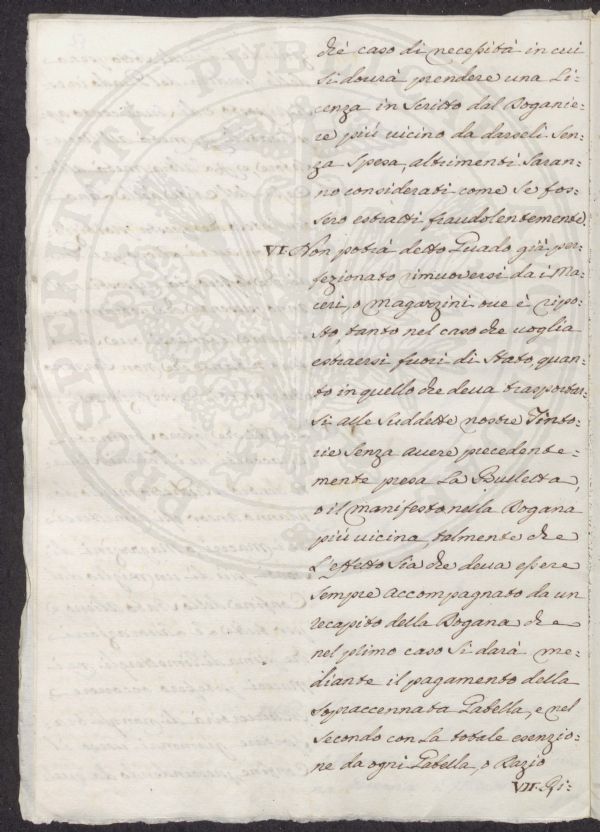 che caso di necessità in cui
si dourà prendere una Li=
cenza in Scritto dal Doganie=
re più uicino da darseli Sen=
za Spesa, altrimenti Saran=
no considerati come Se fos=
sero estratti fraudolentemente.
VI. Non potrà detto Guado già per=
fezionato rimuoversi da i Ma=
ceri, o Magazzini oue è ripo=
sto, tanto nel caso che uoglia
estraersi fuori di Stato, quan=
to in quello che deua trasportar=
si alle Suddette nostre Tinto=
rie Senza auere precedente=
mente presa La Bulletta,
o il manifesto nella Dogana
più uicina, talmente che
L'effetto Sia che deua essere
Sempre accompagnato da un
recapito della Dogana che
nel primo caso Si darà me=
diante il pagamento della
Sopraccennata Gabella, e nel
Secondo con La totale esenzio=
ne da ogni Gabella, o Dazio
VII. Ri=
PROSPERITATI PUBLICAE